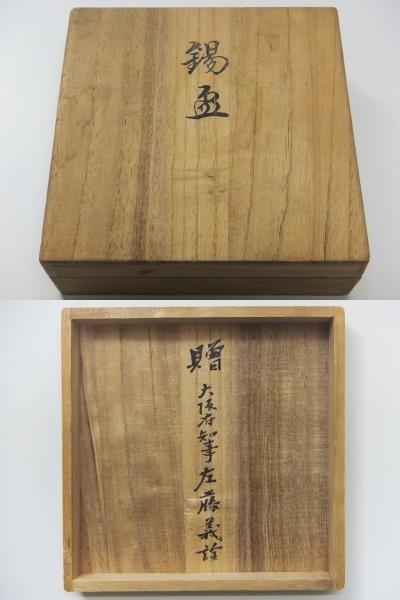 錫盃
贈
大阪府知事左藤義詮